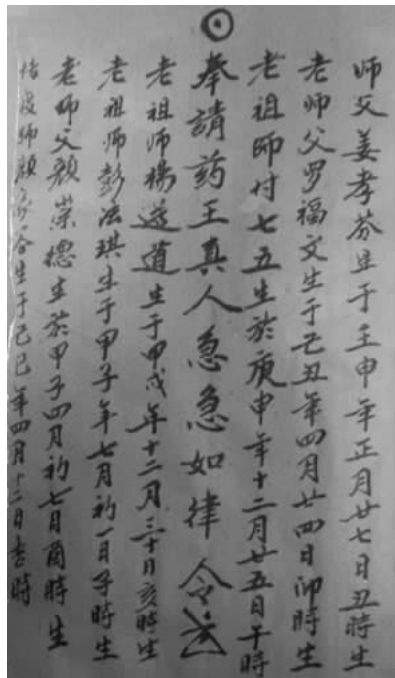 师父姜孝芬生于壬申年正月廿七日丑時生
老师父罗福文生于乙丑年四月廿四日卯時生
老祖師付七五生於庚申年十二月廿五日午時
奉請药王真人急急如律令
老祖师楊道生于甲戌年十二月三十日亥時生
老祖师彭法琪生于甲子年七月初一日子時生
老师父颜崇德生於甲子四月初七日酉時生
度师颜谷生于己巳年四月十二日吉時